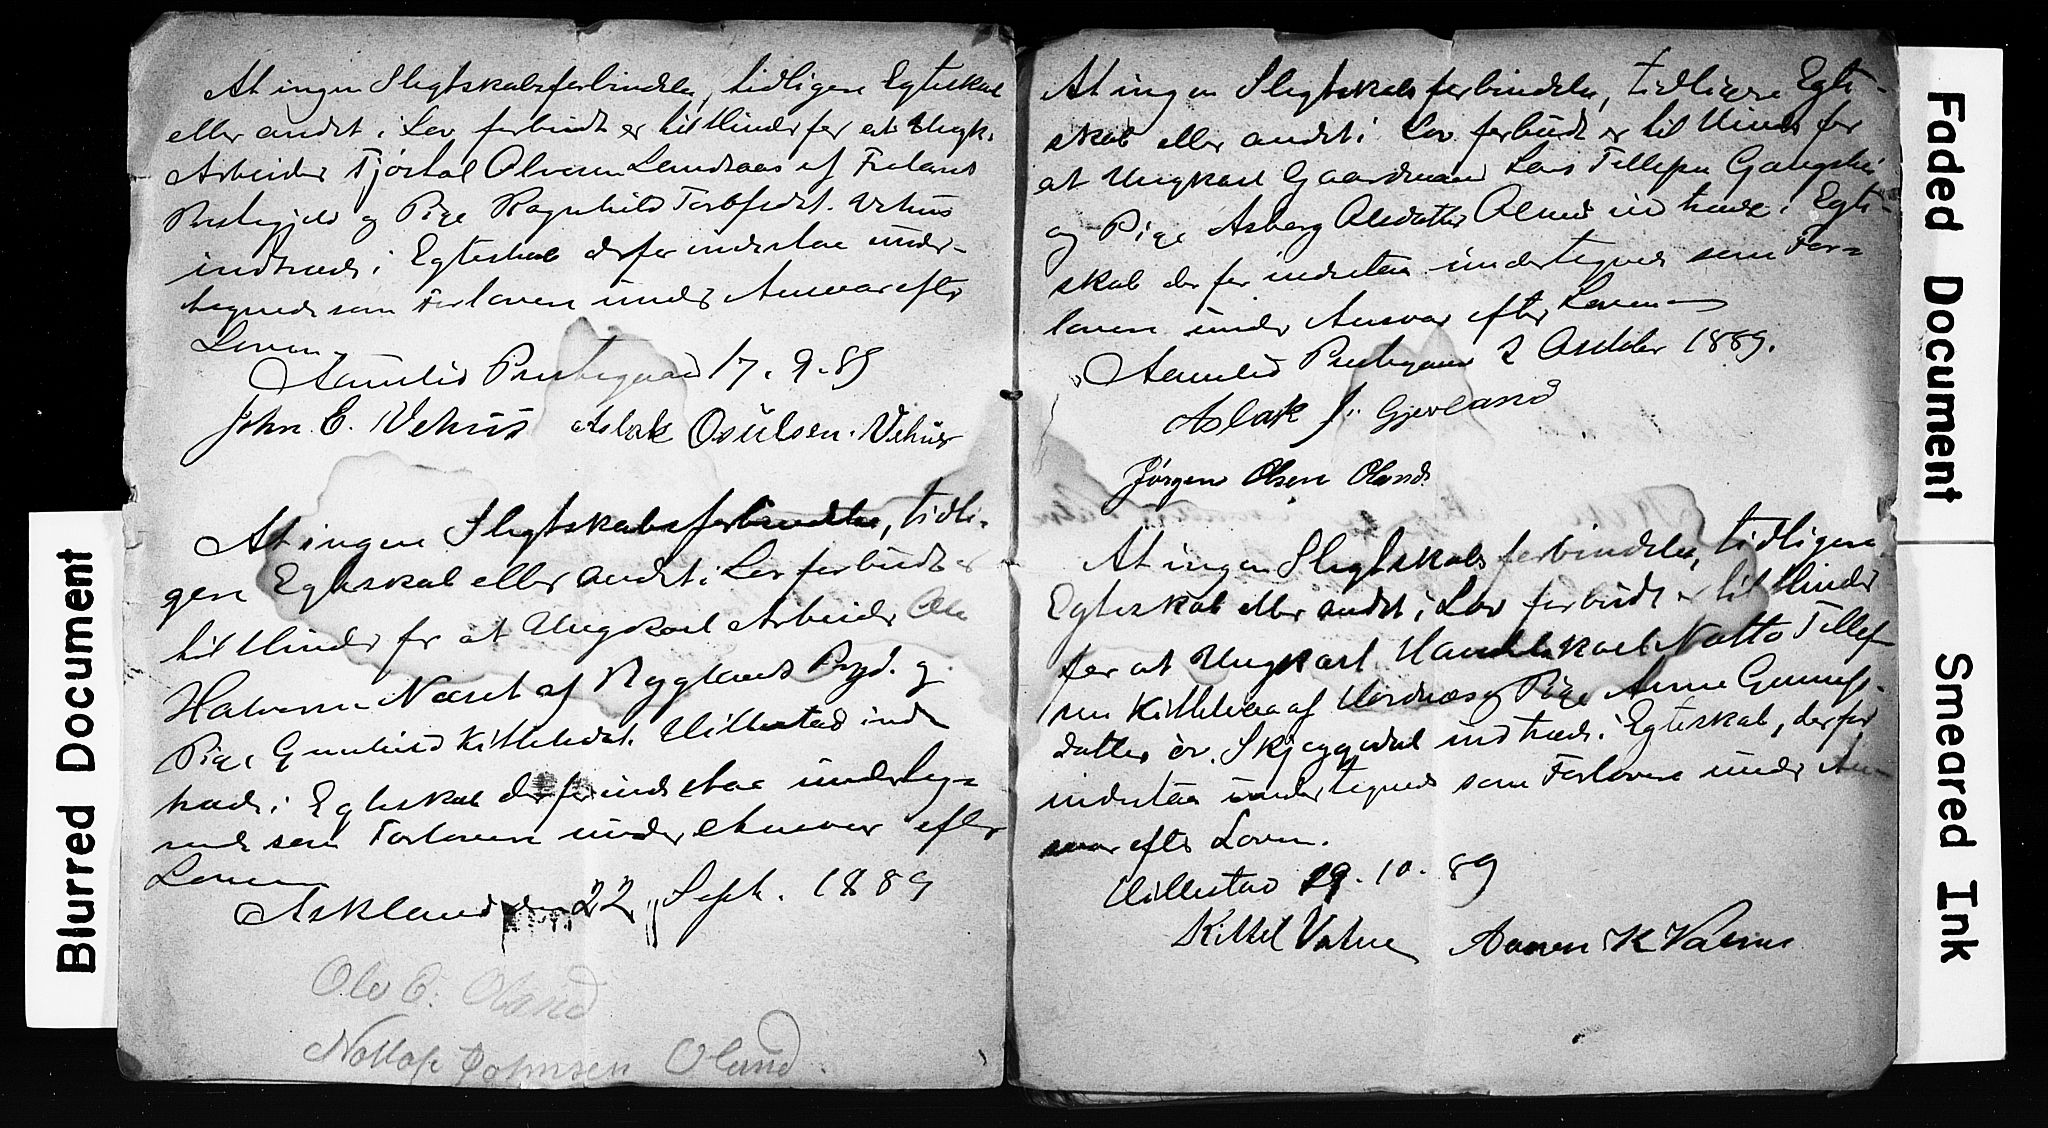 At ingen Slegtskabsforbindelse, tidligere Egteskab
eller andet i Lov forbudt er til Hinder for at Ungk.
Arbeider Tjøstal Olsen Landaas af Froland
Prestegjeld og Pige Ragnhild Torbjødt. Vehus
indtræde i Egteskab derfor indestaa under-
tegnede som Forlovere under Ansvar efter
Loven.
Aamlid Prestegaard 17.9.89
John E. Vehus Aslak Osulsen Vehus
At ingen Slegtskabsforbindelse, tidli-
gere Egteskab eller andet i Lov forbudt er
til Hinder for at Ungkarl Arbeider Ole
Halvorsen Næset af Nygland Prgd. og
Pige Gunhild Kittelsdt. Hillestad ind
træde i Egteskab derfor indestaa underteg-
nede som Forlovere under Ansvar efter
Loven
Askland den 22 Sept. 1889
Ole E. Oland
Nottolf Johnsen Oland
At ingen Slegtskabsforbindelse, tidligere Egte-
skab eller andet i Lov forbudt er til Hinder for
at Ungkarl Gaardmand Lars Tellefsen Gangsei
og Pige Asberg Olsdatter Oland indtræde i Egte-
skab derfor indestaa undertegnede som For-
lovere under Ansvar efter Loven
Aamlid Prestegaard 2 October 1889.
Aslak J. Gjevland
Jørgen Olsen Oland
At ingen Slegtskabsforbindelse, tidligere
Egteskab eller andet i Lov forbudt er til Hinder
for at Ungkarl Handelskarl Notto Tellef-
sen Kittelsaa af Hordnæs og Pige Anne Gunufs-
datter øv. Skjeggedal indtræde i Egteskab, derfor
indestaa undertegnede som Forlovere under An-
svar efter Loven.
Hillestad 19.10.89
Kittel Vatne Aanen K Vatne
Blurred Document
Faded Document
Smeared Ink